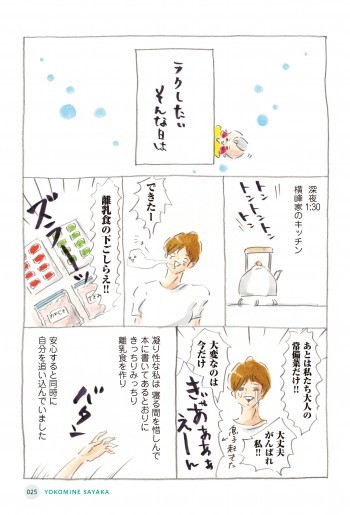 ラクしたい
そんな日は
深夜
1:30
横峰家のキッチン
トン
トントン
トントン
できたー
離乳食の下ごしらえ!!
ズラーッ
あとは私たち大人の
常備菜だけ!!
大丈夫
がんばれ
私!!
大変なのは
今だけ
ぎゃあぁぁ
えーん
息子起きた
凝り性な私は 寝る間を惜しんで
本に書いてあるとおりに
きっちりみっちり
離乳食を作り
バタン
安心すると同時に
自分を追い込んでいました
025 YOKOMINE SAYAKA